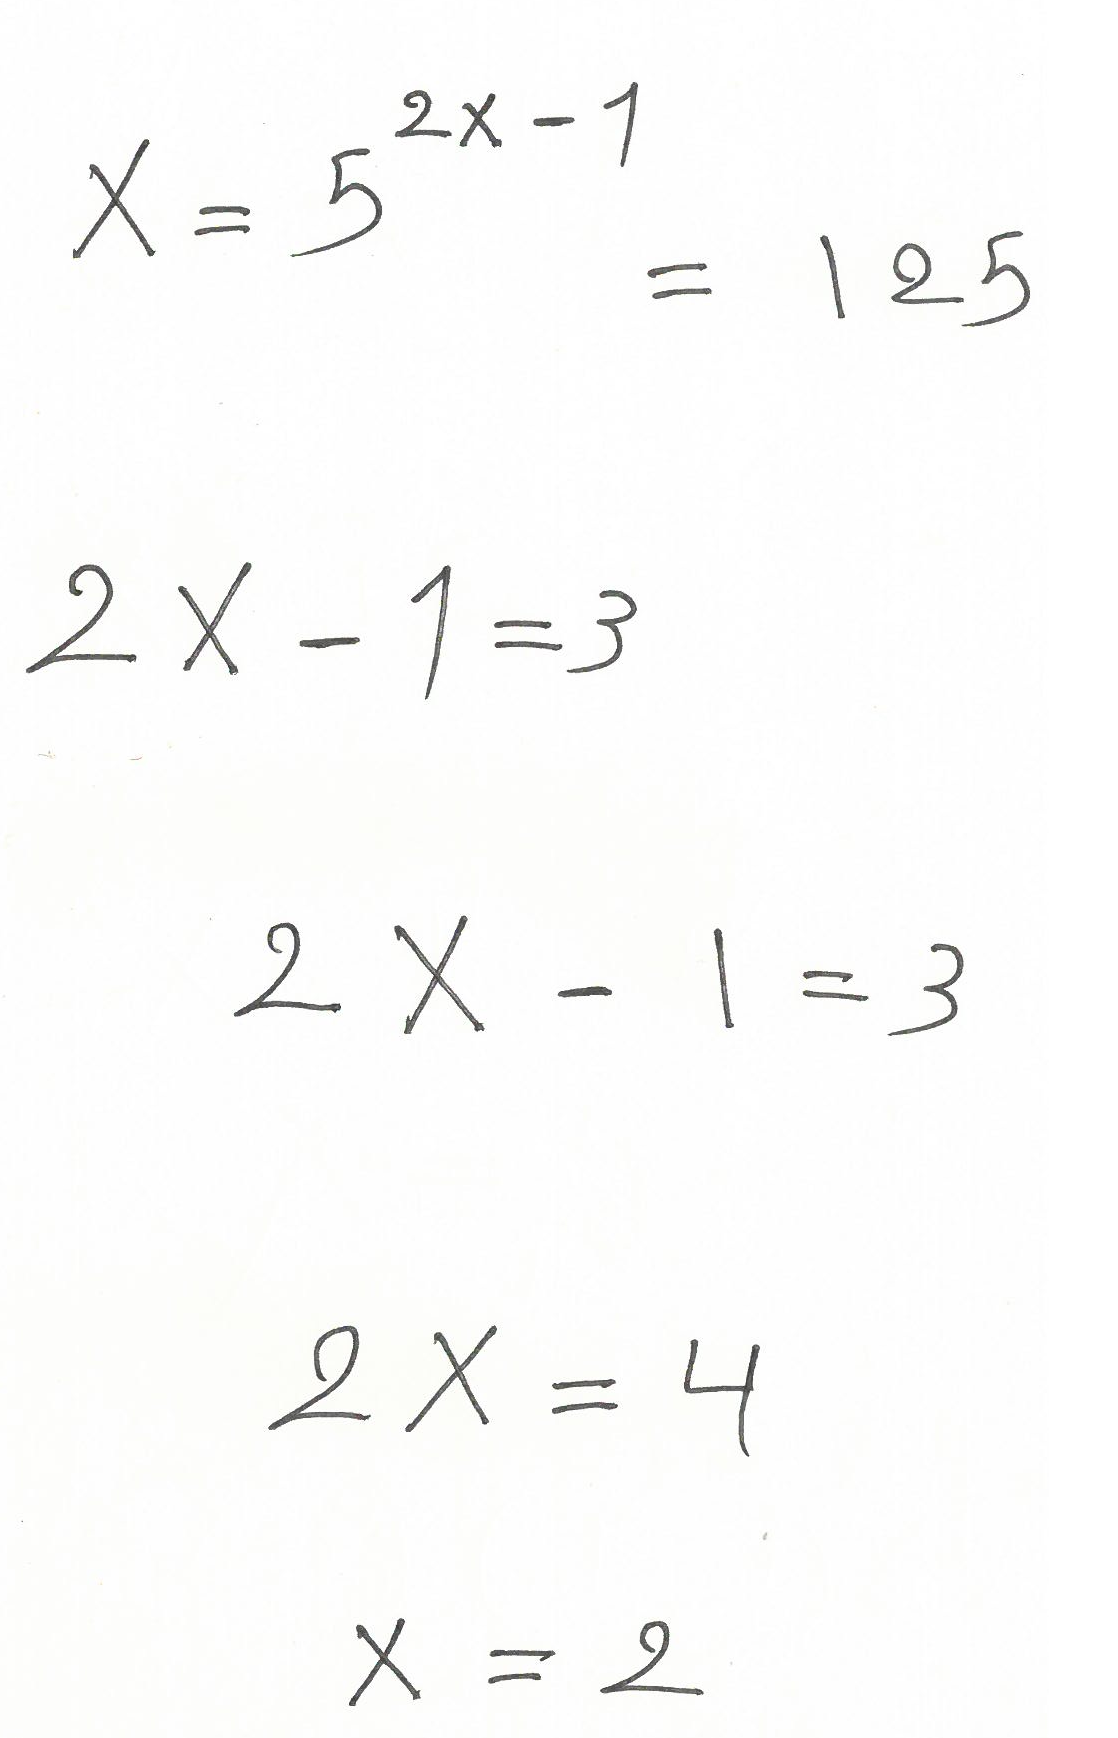 X = 5^{2x - 1} = 125
2X - 1 = 3
2X - 1 = 3
2X = 4
x = 2